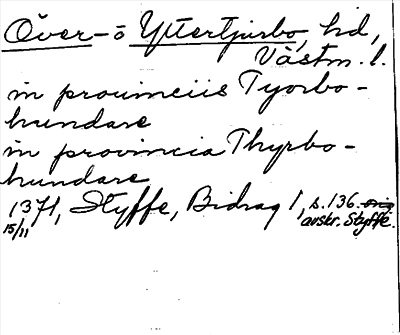 Över- o Yttertjurbo, hd,
Västm. l.
in prouinciis Tyorbo-
hundare
in provincia Thyrbo-
hundare
1371, Styffe, Bidrag 1, s. 136. orig
15/11 avskr. Styffe.